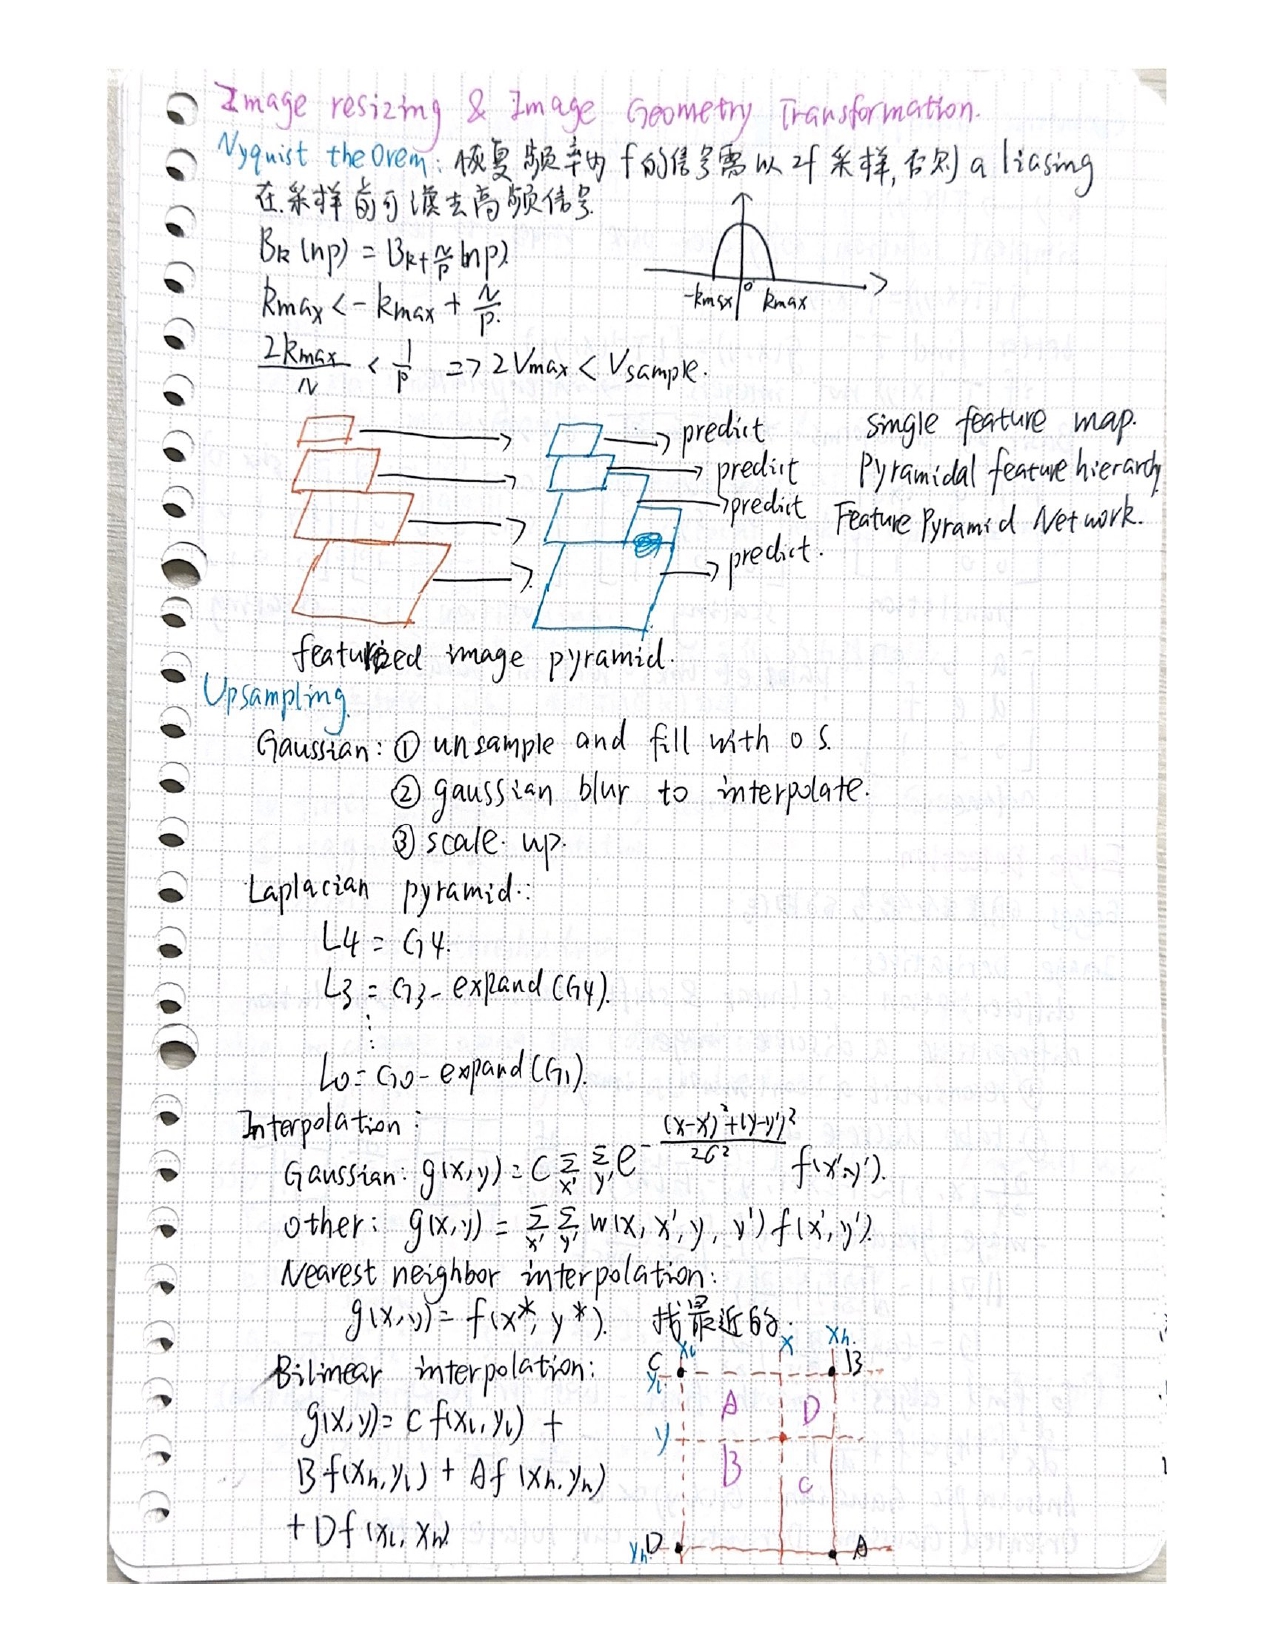 Image resizing & Image Geometry Transformation.
Nyquist theorem: 恢复频率为 f的信号需以 2f 采样, 否则 aliasing
在采样前可滤去高频信号.
Bk(np) = Bk+N/p(np)
kmax < -kmax + N/p.
2kmax/N < 1/p => 2Vmax < Vsample.
-kmax 0 kmax
predict
predict
predict
predict.
Single feature map.
Pyramidal feature hierarchy
Feature Pyramid Network.
featurized image pyramid.
Upsampling.
Gaussian: ① unsample and fill with 0 s.
② gaussian blur to interpolate.
③ scale up.
Laplacian pyramid:
L4 = G4.
L3 = G3 - expand(G4).
⋮
L0 = G0 - expand(G1).
Interpolation:
Gaussian: g(x,y) = C Σx' Σy' e^-((x-x')²+(y-y')²)/2σ² f(x',y').
other: g(x,y) = Σx' Σy' w(x, x', y, y') f(x',y').
Nearest neighbor interpolation:
g(x,y) = f(x*, y*). 找最近的.
Bilinear interpolation:
g(x,y) = C f(xl, yl) +
B f(xh, yl) + A f(xh, yh)
+ D f(xl, xh)
xl x xh.
C B
yl
A D
y
B C
yh D A